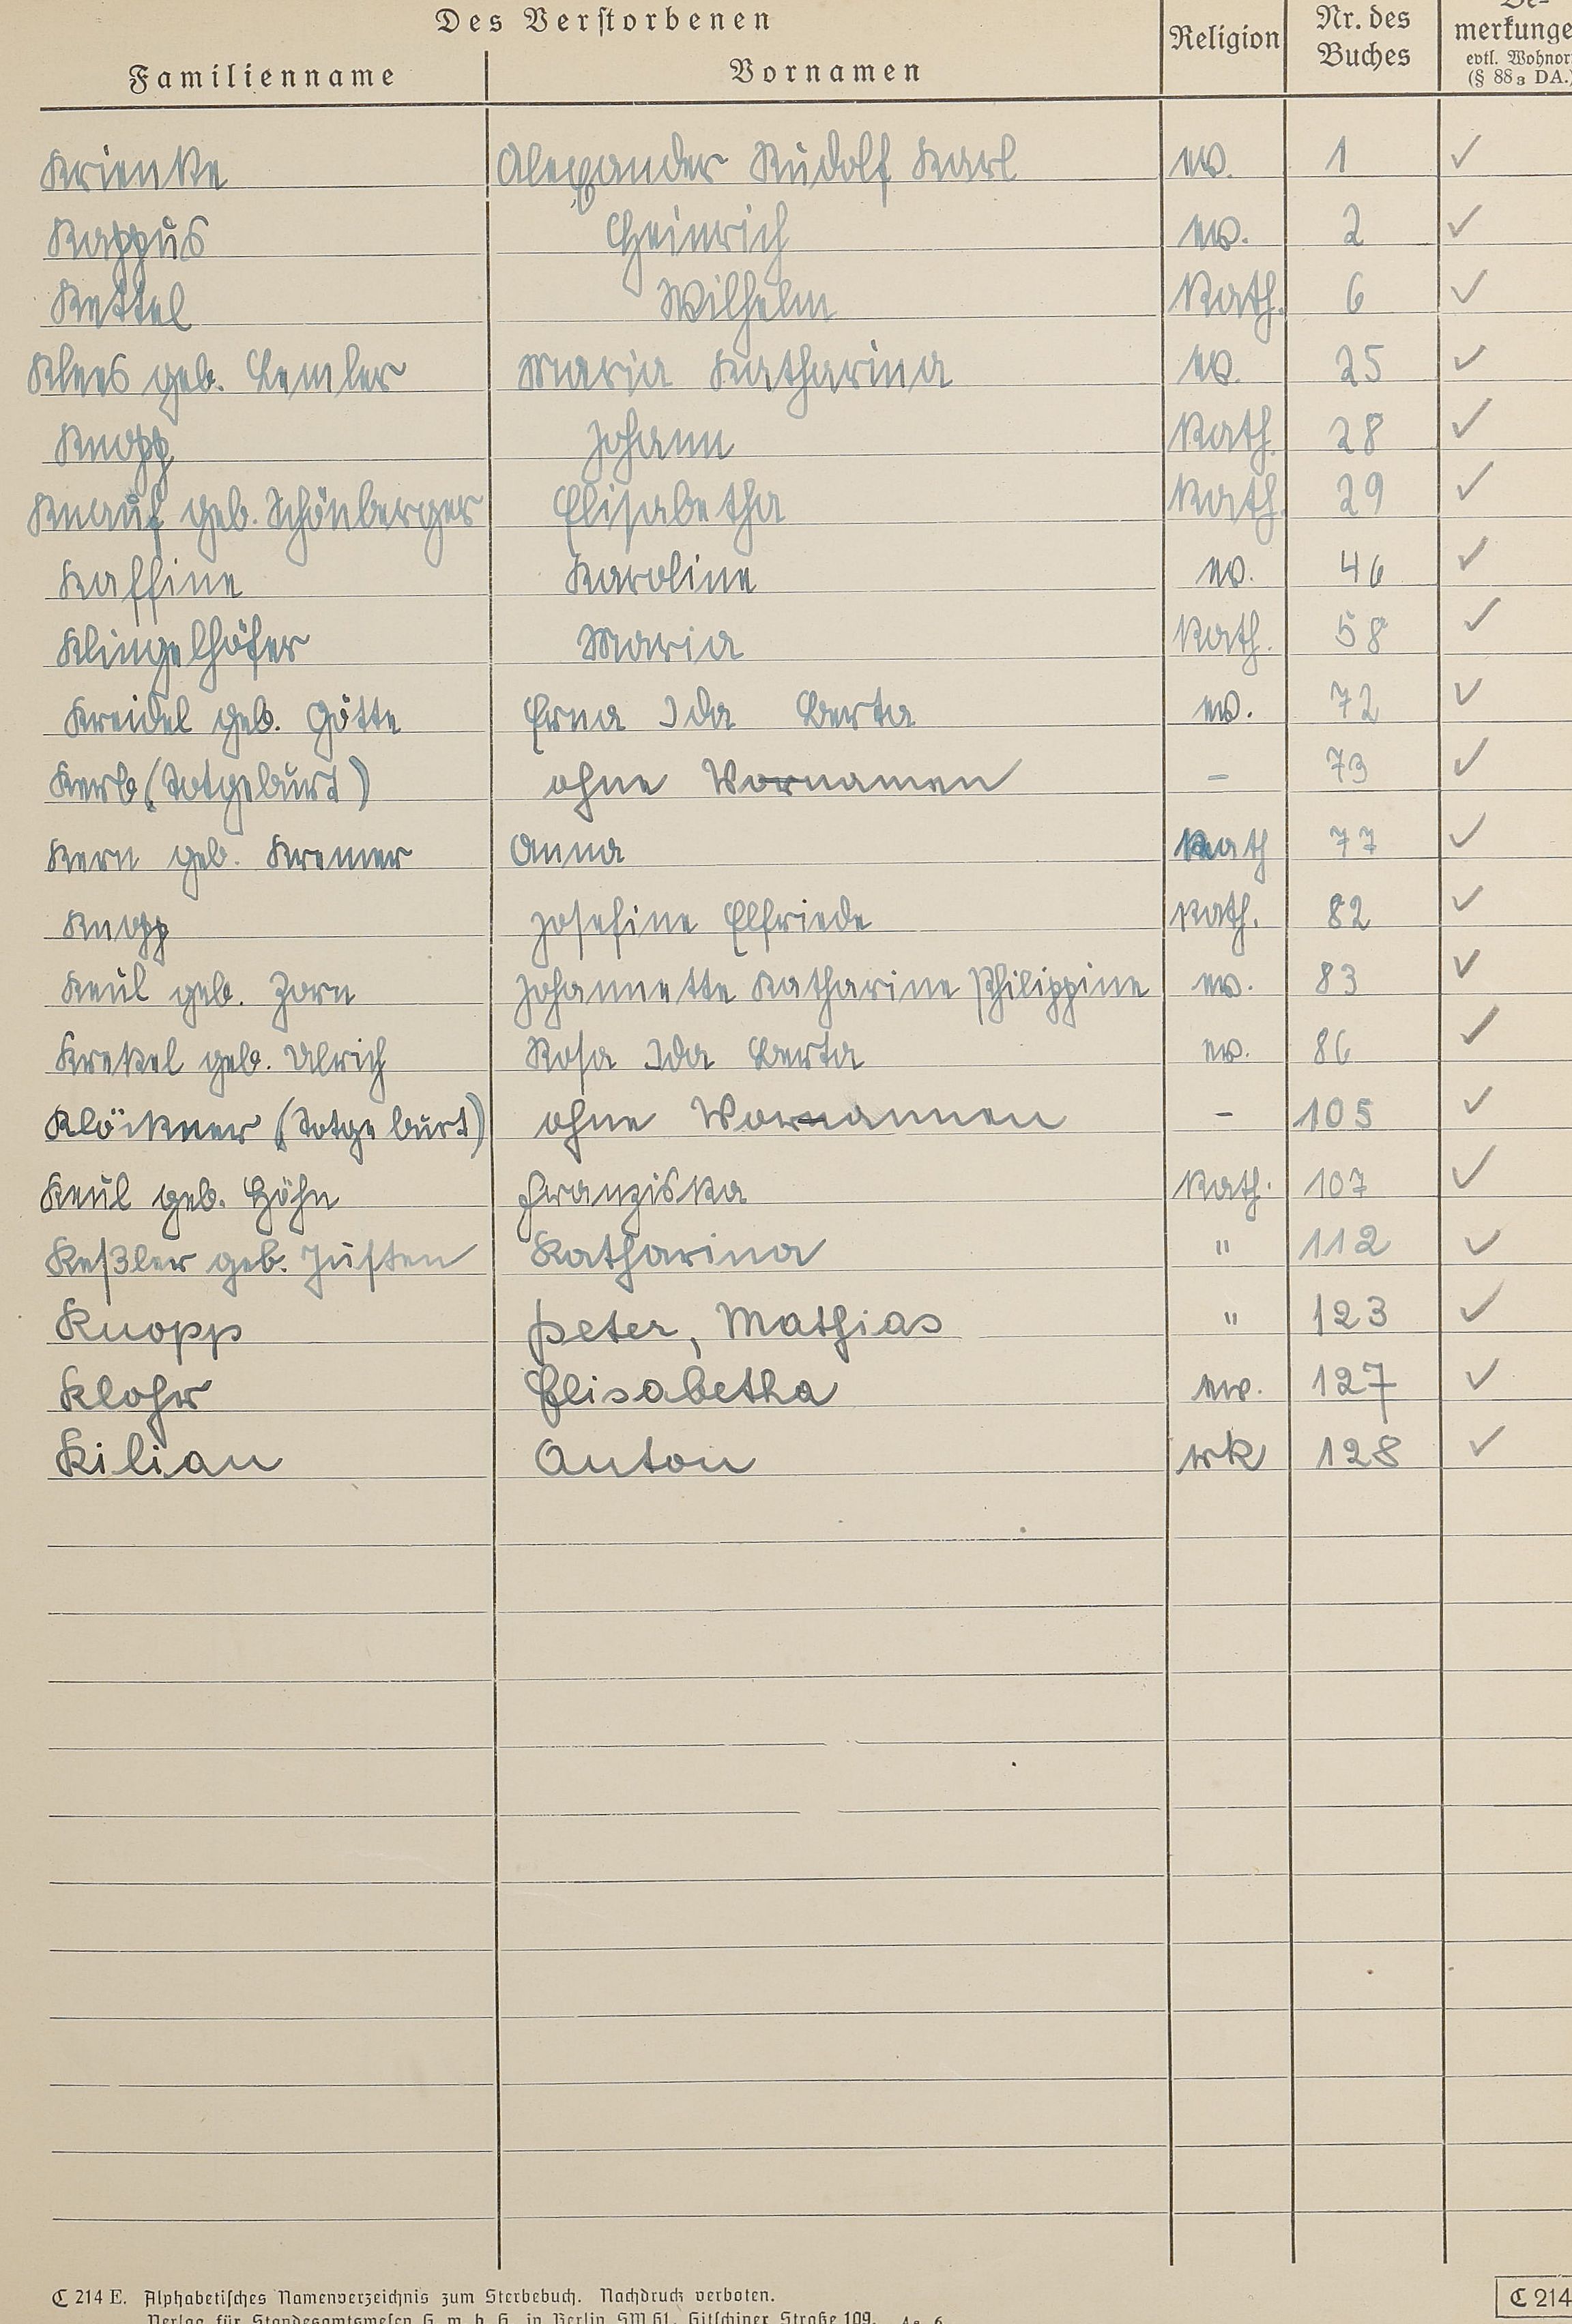 Des Verstorbenen
Familienname Vornamen Religion Nr. des Buches Be-
merkunge
evtl. Wohnor
(§ 88 3 DA.)
Krienke Alexander Rudolf Karl ev. 1 ✓
Kappus Heinrich ev. 2 ✓
Kettel Wilhelm Kath. 6 ✓
Klees geb. Lemler Maria Katharina ev. 25 ✓
Knopp Johann Kath. 28 ✓
Knauf geb. Schönberger Elisabetha Kath. 29 ✓
Kaffine Karoline ev. 46 ✓
Klingelhöfer Maria Kath. 58 ✓
Kreidel geb. Götte Erna Ida Berta ev. 72 ✓
Kerb (Totgeburt) ohne Vornamen – 73 ✓
Kern geb. Kremer Anna Kath 77 ✓
Knopp Josefine Elfriede Kath. 82 ✓
Keul geb. Zorn Johannette Katharine Philippine ev. 83 ✓
Krekel geb. Ulrich Rosa Ida Berta ev. 86 ✓
Klöckner (Totgeburt) ohne Vornamen – 105 ✓
Keul geb. Höhn Franziska Kath. 107 ✓
Keßler geb. Justen Katharina " 112 ✓
Knopp Peter, Mathias " 123 ✓
Klohr Elisabetha ev. 127 ✓
Kilian Anton rk 128 ✓
C 214 E. Alphabetisches Namenverzeichnis zum Sterbebuch. Nachdruck verboten.
Verlag für Standesamtswesen G. m. b. H. in Berlin SW 61, Gitschiner Straße 109.
C 214